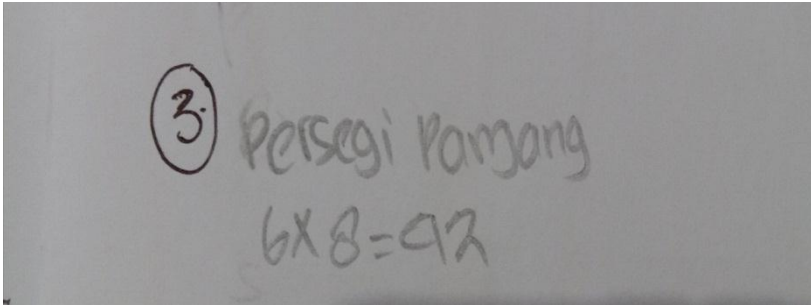 3. Persegi Panjang
6x8=42